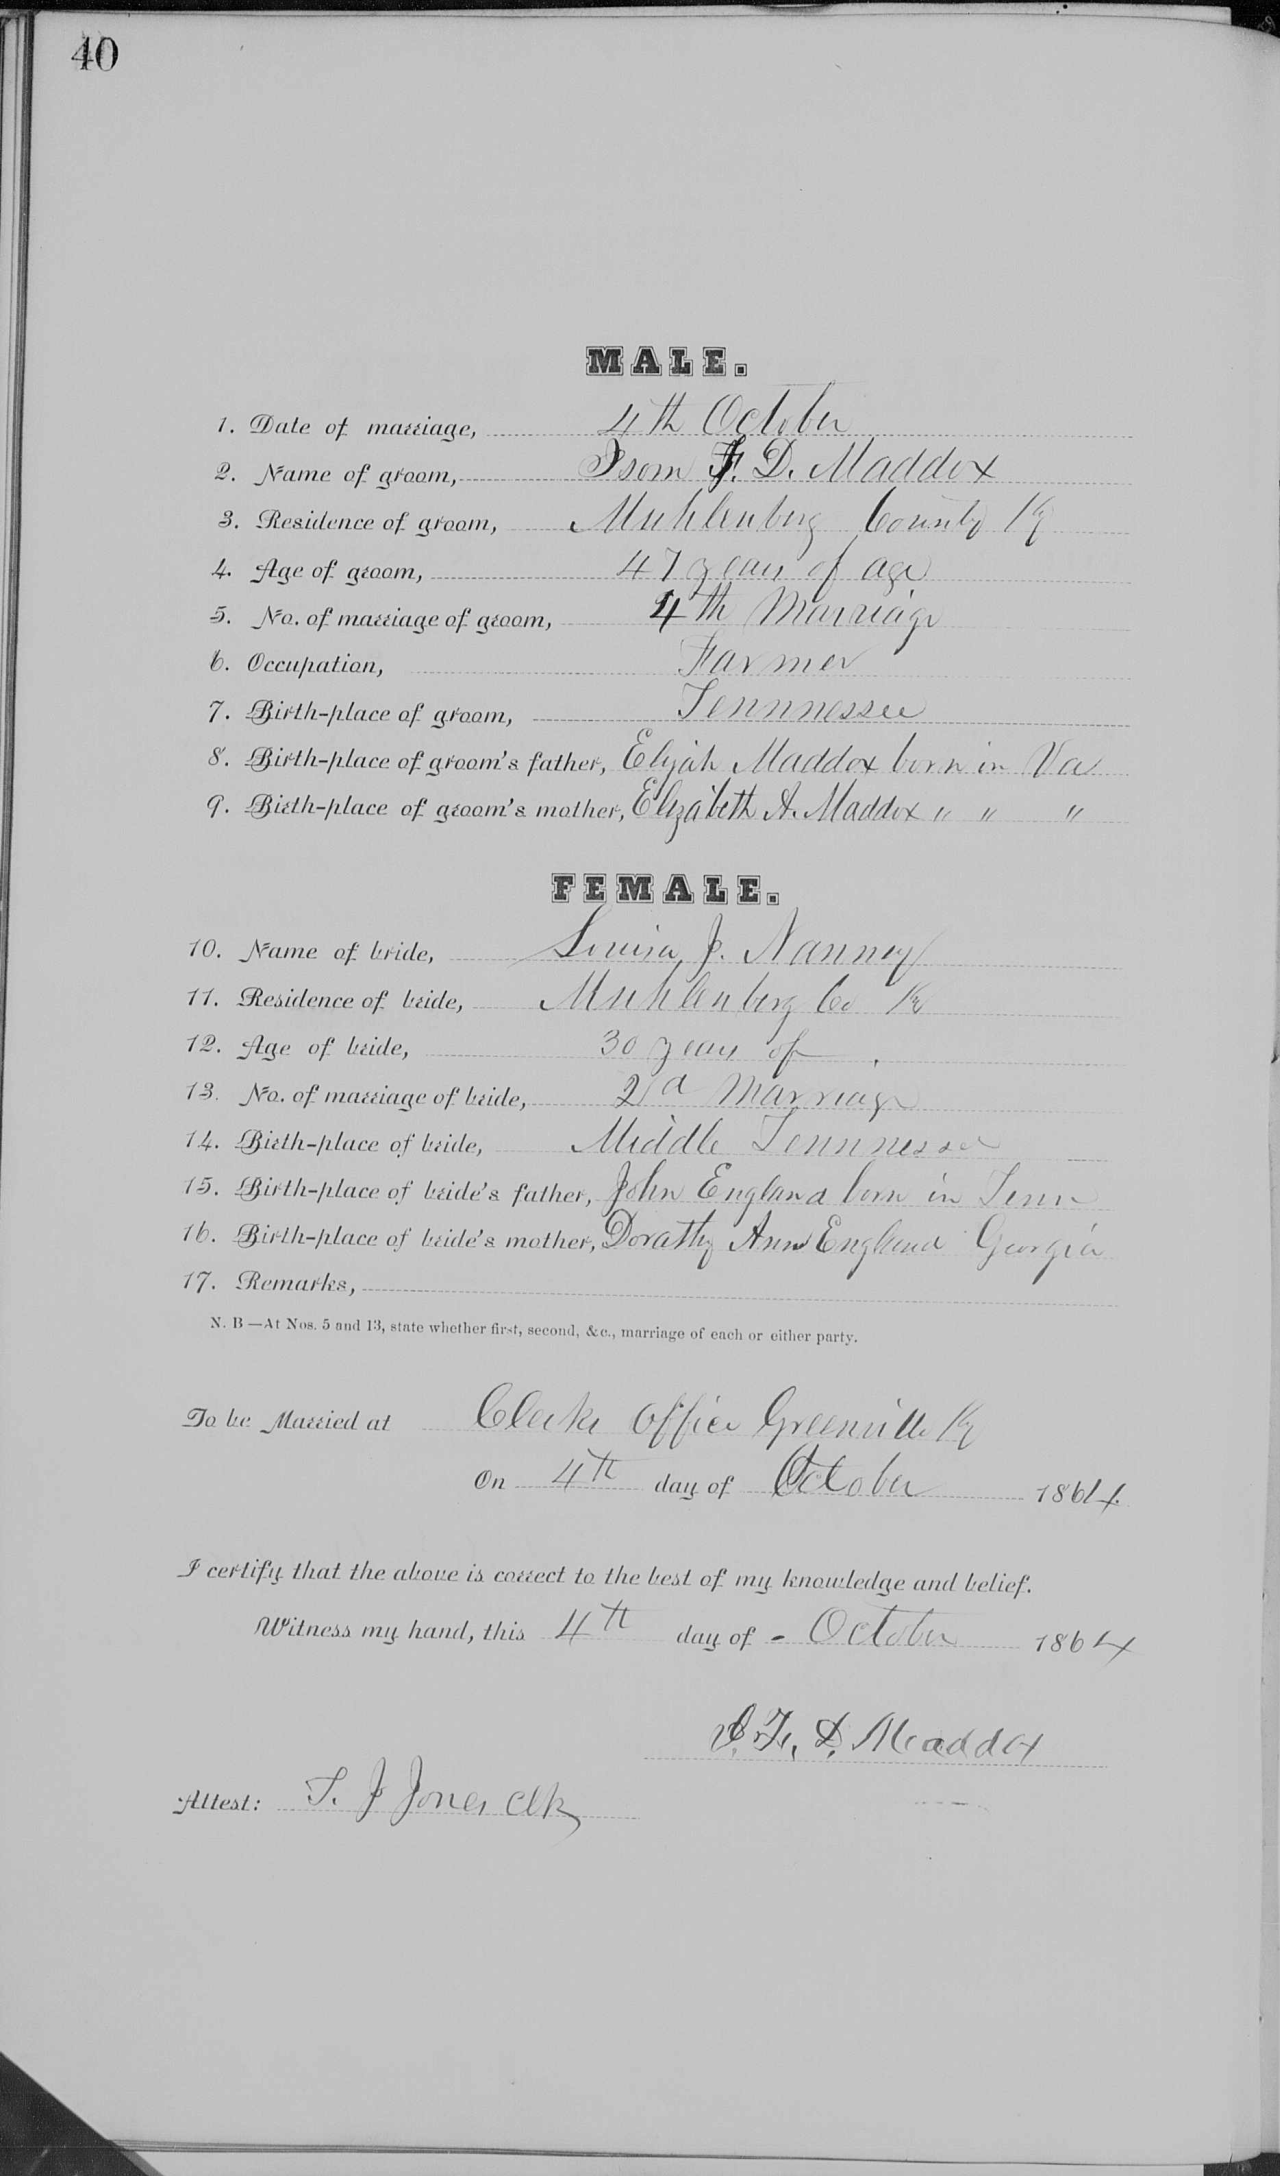 40
MALE.
1. Date of marriage, 4th October
2. Name of groom, Isom F. D. Maddox
3. Residence of groom, Muhlenberg County Ky
4. Age of groom, 47 years of age
5. No. of marriage of groom, 4th Marriage
6. Occupation, Farmer
7. Birth-place of groom, Tennnessee
8. Birth-place of groom's father, Elijah Maddox born in Va
9. Birth-place of groom's mother, Elizabeth A. Maddox " " "
FEMALE.
10. Name of bride, Louisa J. Nanney
11. Residence of bride, Muhlenberg Co Ky
12. Age of bride, 30 years of
13. No. of marriage of bride, 2d Marriage
14. Birth-place of bride, Middle Tennnessee
15. Birth-place of bride's father, John England born in Tenn
16. Birth-place of bride's mother, Dorathy Ann England Georgia
17. Remarks,
N. B—At Nos. 5 and 13, state whether first, second, &c., marriage of each or either party.
To be Married at Clerks Office Greenville Ky
On 4th day of October 1864.
I certify that the above is correct to the best of my knowledge and belief.
Witness my hand, this 4th day of - October 1864
I. F. D. Maddox
Attest: T. J Jones Clk